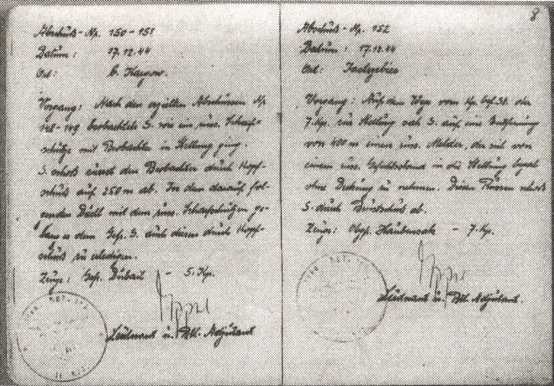 Abschuß-Np. 150-151
Datum: 17.12.44
Ort: b. Kaysow.
Vorgang: Nach den erzielten Abschüssen Np.
beobachtete S. wie ein russ. Scharf-
schütze mit Beobachter in Stellung ging.
S. schoß zuerst den Beobachter durch Kopf-
schuß auf 250 m ab. In dem darauf fol-
genden Duell mit dem russ. Scharfschützen ge-
lang es dem Gefr. S. auch diesen durch Kopf-
schuß zu erledigen.
Zeuge: Gefr. - 5. Kp.
Leutnant u. Btl. Adjutant
8
Abschuß-Np. 152
Datum: 17.12.44
Ort:
Vorgang: Auf dem Weg vom Kp. Gef. St. der
7. Kp. zur Stellung sah S. auf eine Entfernung
von 400 m einen russ. Melder, der sich von
einem russ. Gefechtsstand in die Stellung begab
ohne Deckung zu nehmen. Diesen Russen schoß
S. durch Brustschuß ab.
Zeuge: Ogfr. - 7. Kp.
Leutnant u. Btl. Adjutant.